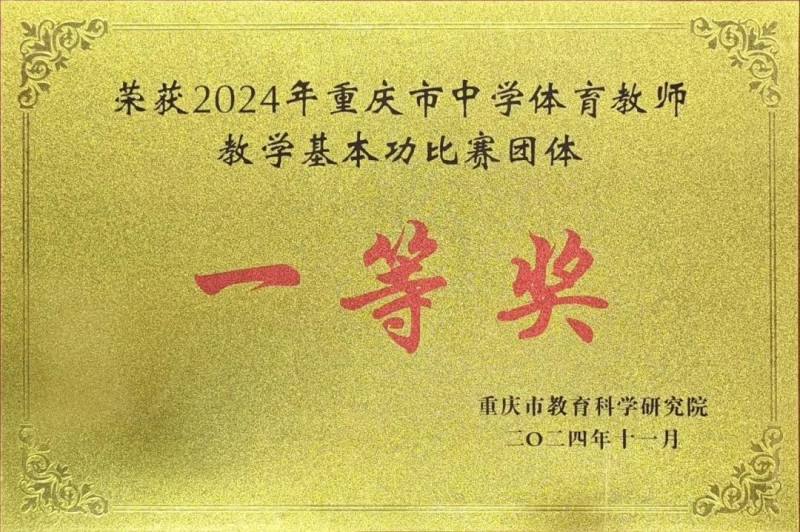 荣获2024年重庆市中学体育教师
教学基本功比赛团体
一等奖
重庆市教育科学研究院
二〇二四年十一月